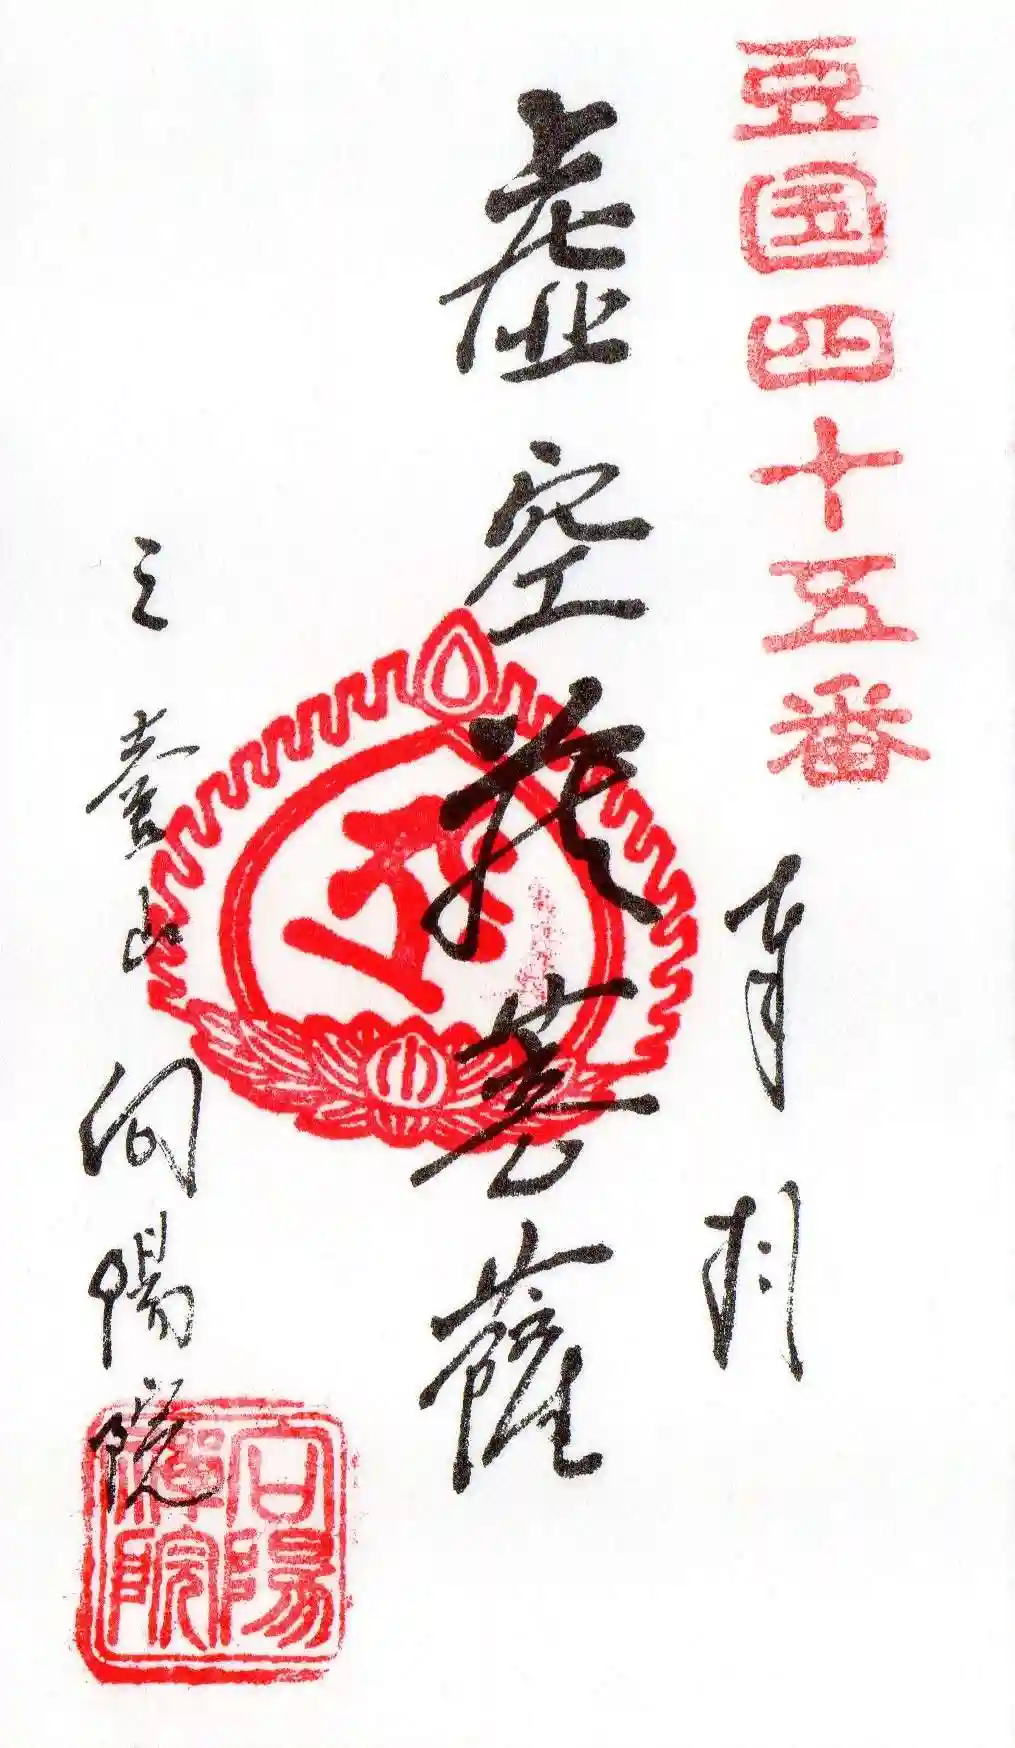 豆国四十五番
奉拝
虚空蔵菩薩
三山向陽院
向陽禅院